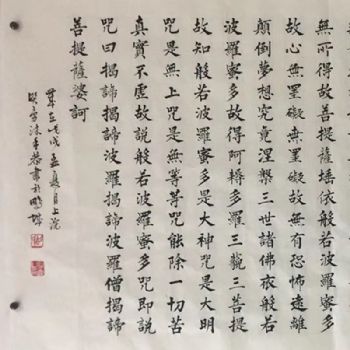 無所得故菩提薩埵依般若波羅蜜多
故心無罣礙無罣礙故無有恐怖遠離
顛倒夢想究竟涅槃三世諸佛依般若
波羅蜜多故得阿耨多羅三藐三菩提
故知般若波羅蜜多是大神咒是大明
咒是無上咒是無等等咒能除一切苦
真實不虛故說般若波羅蜜多咒即說
咒曰揭諦揭諦波羅揭諦波羅僧揭諦
菩提薩婆訶
歲在壬戌孟夏月上浣
沐手恭書於鵬城